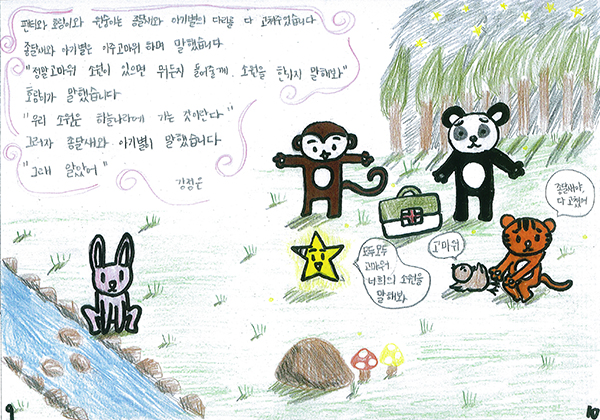 판다와 호랑이와 원숭이는 종달새와 아기별의 다리를 다 고쳐주었습니다
종달새와 아기별은 아주고마워 하며 말했습니다
"정말고마워 소원이 있으면 뭐든지 들어줄께 소원을 한가지 말해봐"
호랑이가 말했습니다
"우리 소원은 하늘나라에 가는 것이란다"
그러자 종달새와 아기별이 말했습니다
"그래 알았어"
강정은
종달새야,
다 고쳤어
고마워
모두모두
고마워
너희의 소원을
말해봐
9
10